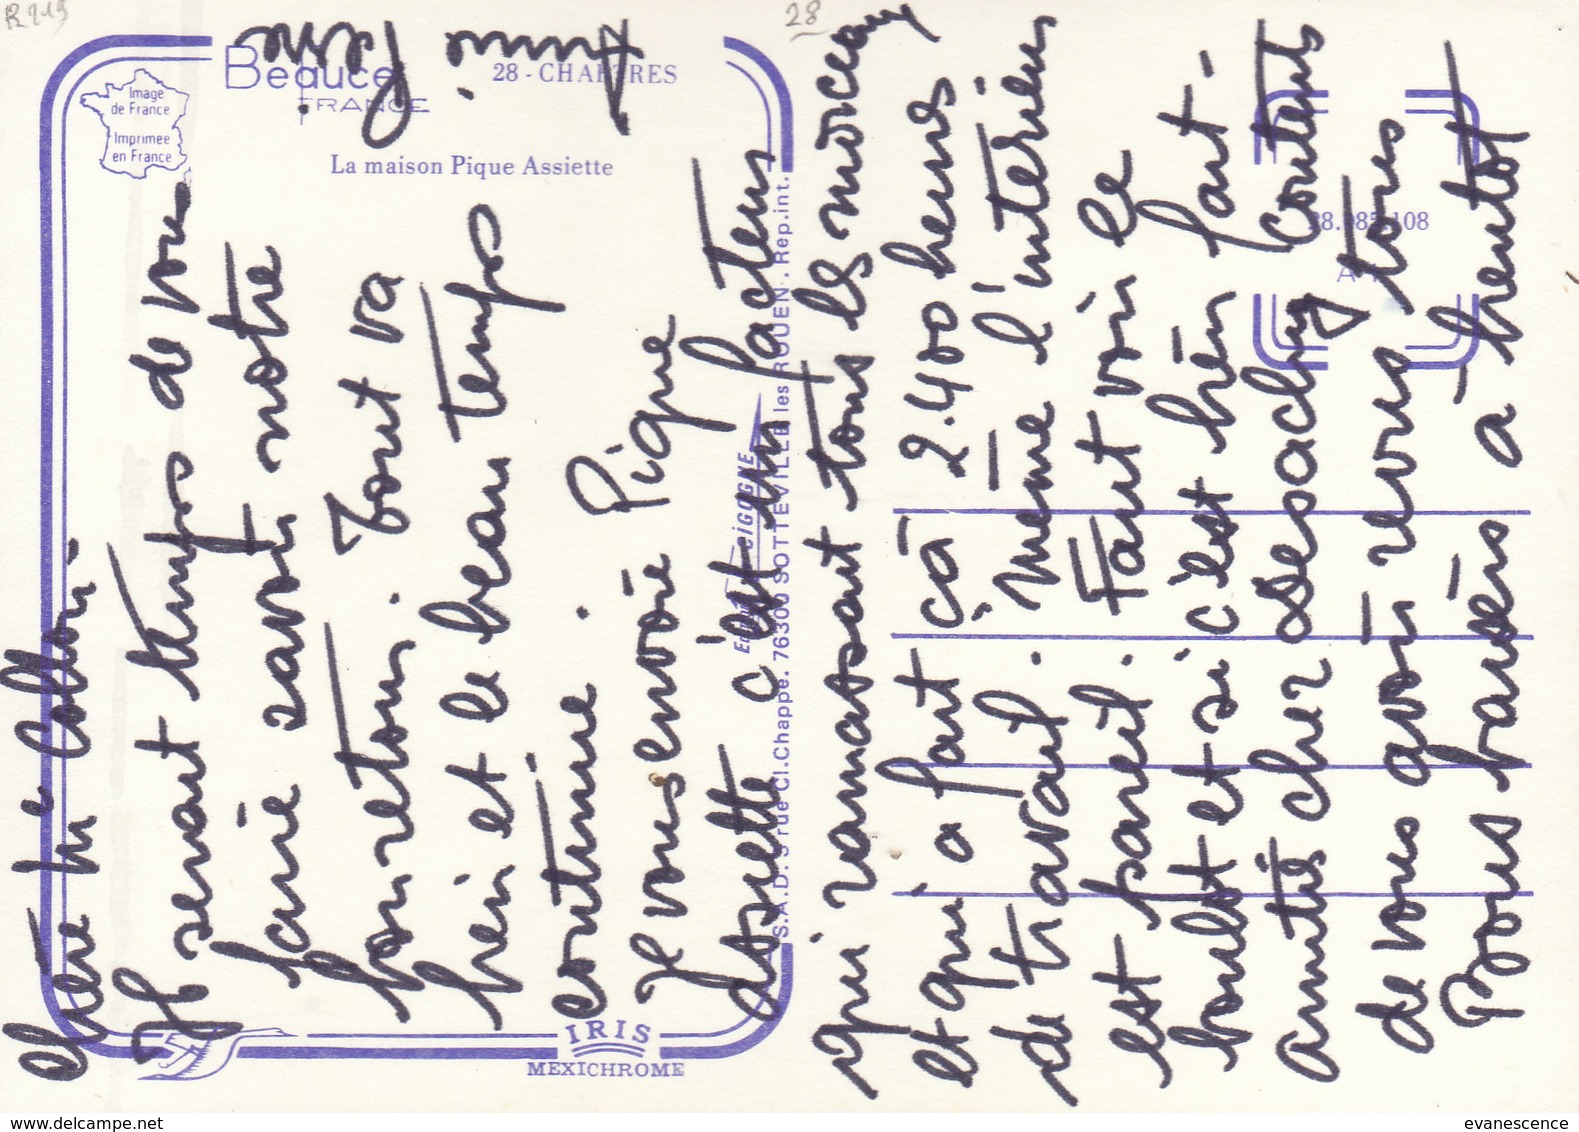 R 219
28
Beauce
FRANCE
28 - CHARTRES
La maison Pique Assiette
Image
de France
Imprimée
en France
IRIS
MEXICHROME
CIGOGNE
S.A.D. 5 rue Cl.Chappe. 76300 SOTTEVILLE les ROUEN. Rep.int.
108
Chère
Il serait temps de vous
faire savoir notre
bon retour. Tout va
bien et le beau temps
continue.
Je vous envoie Pique
Assiette c'est un facteur
qui ramassait tous les morceaux
et qui a fait ça 2.400 heures
de travail. Même l'intérieur
est pareil. Faut voir le
boulot et si c'est bien fait -
amitiés chez Desachy Contents
de vous avoir revus tous
Bons baisers à bientôt
Annie
delcampe.net
evanescence